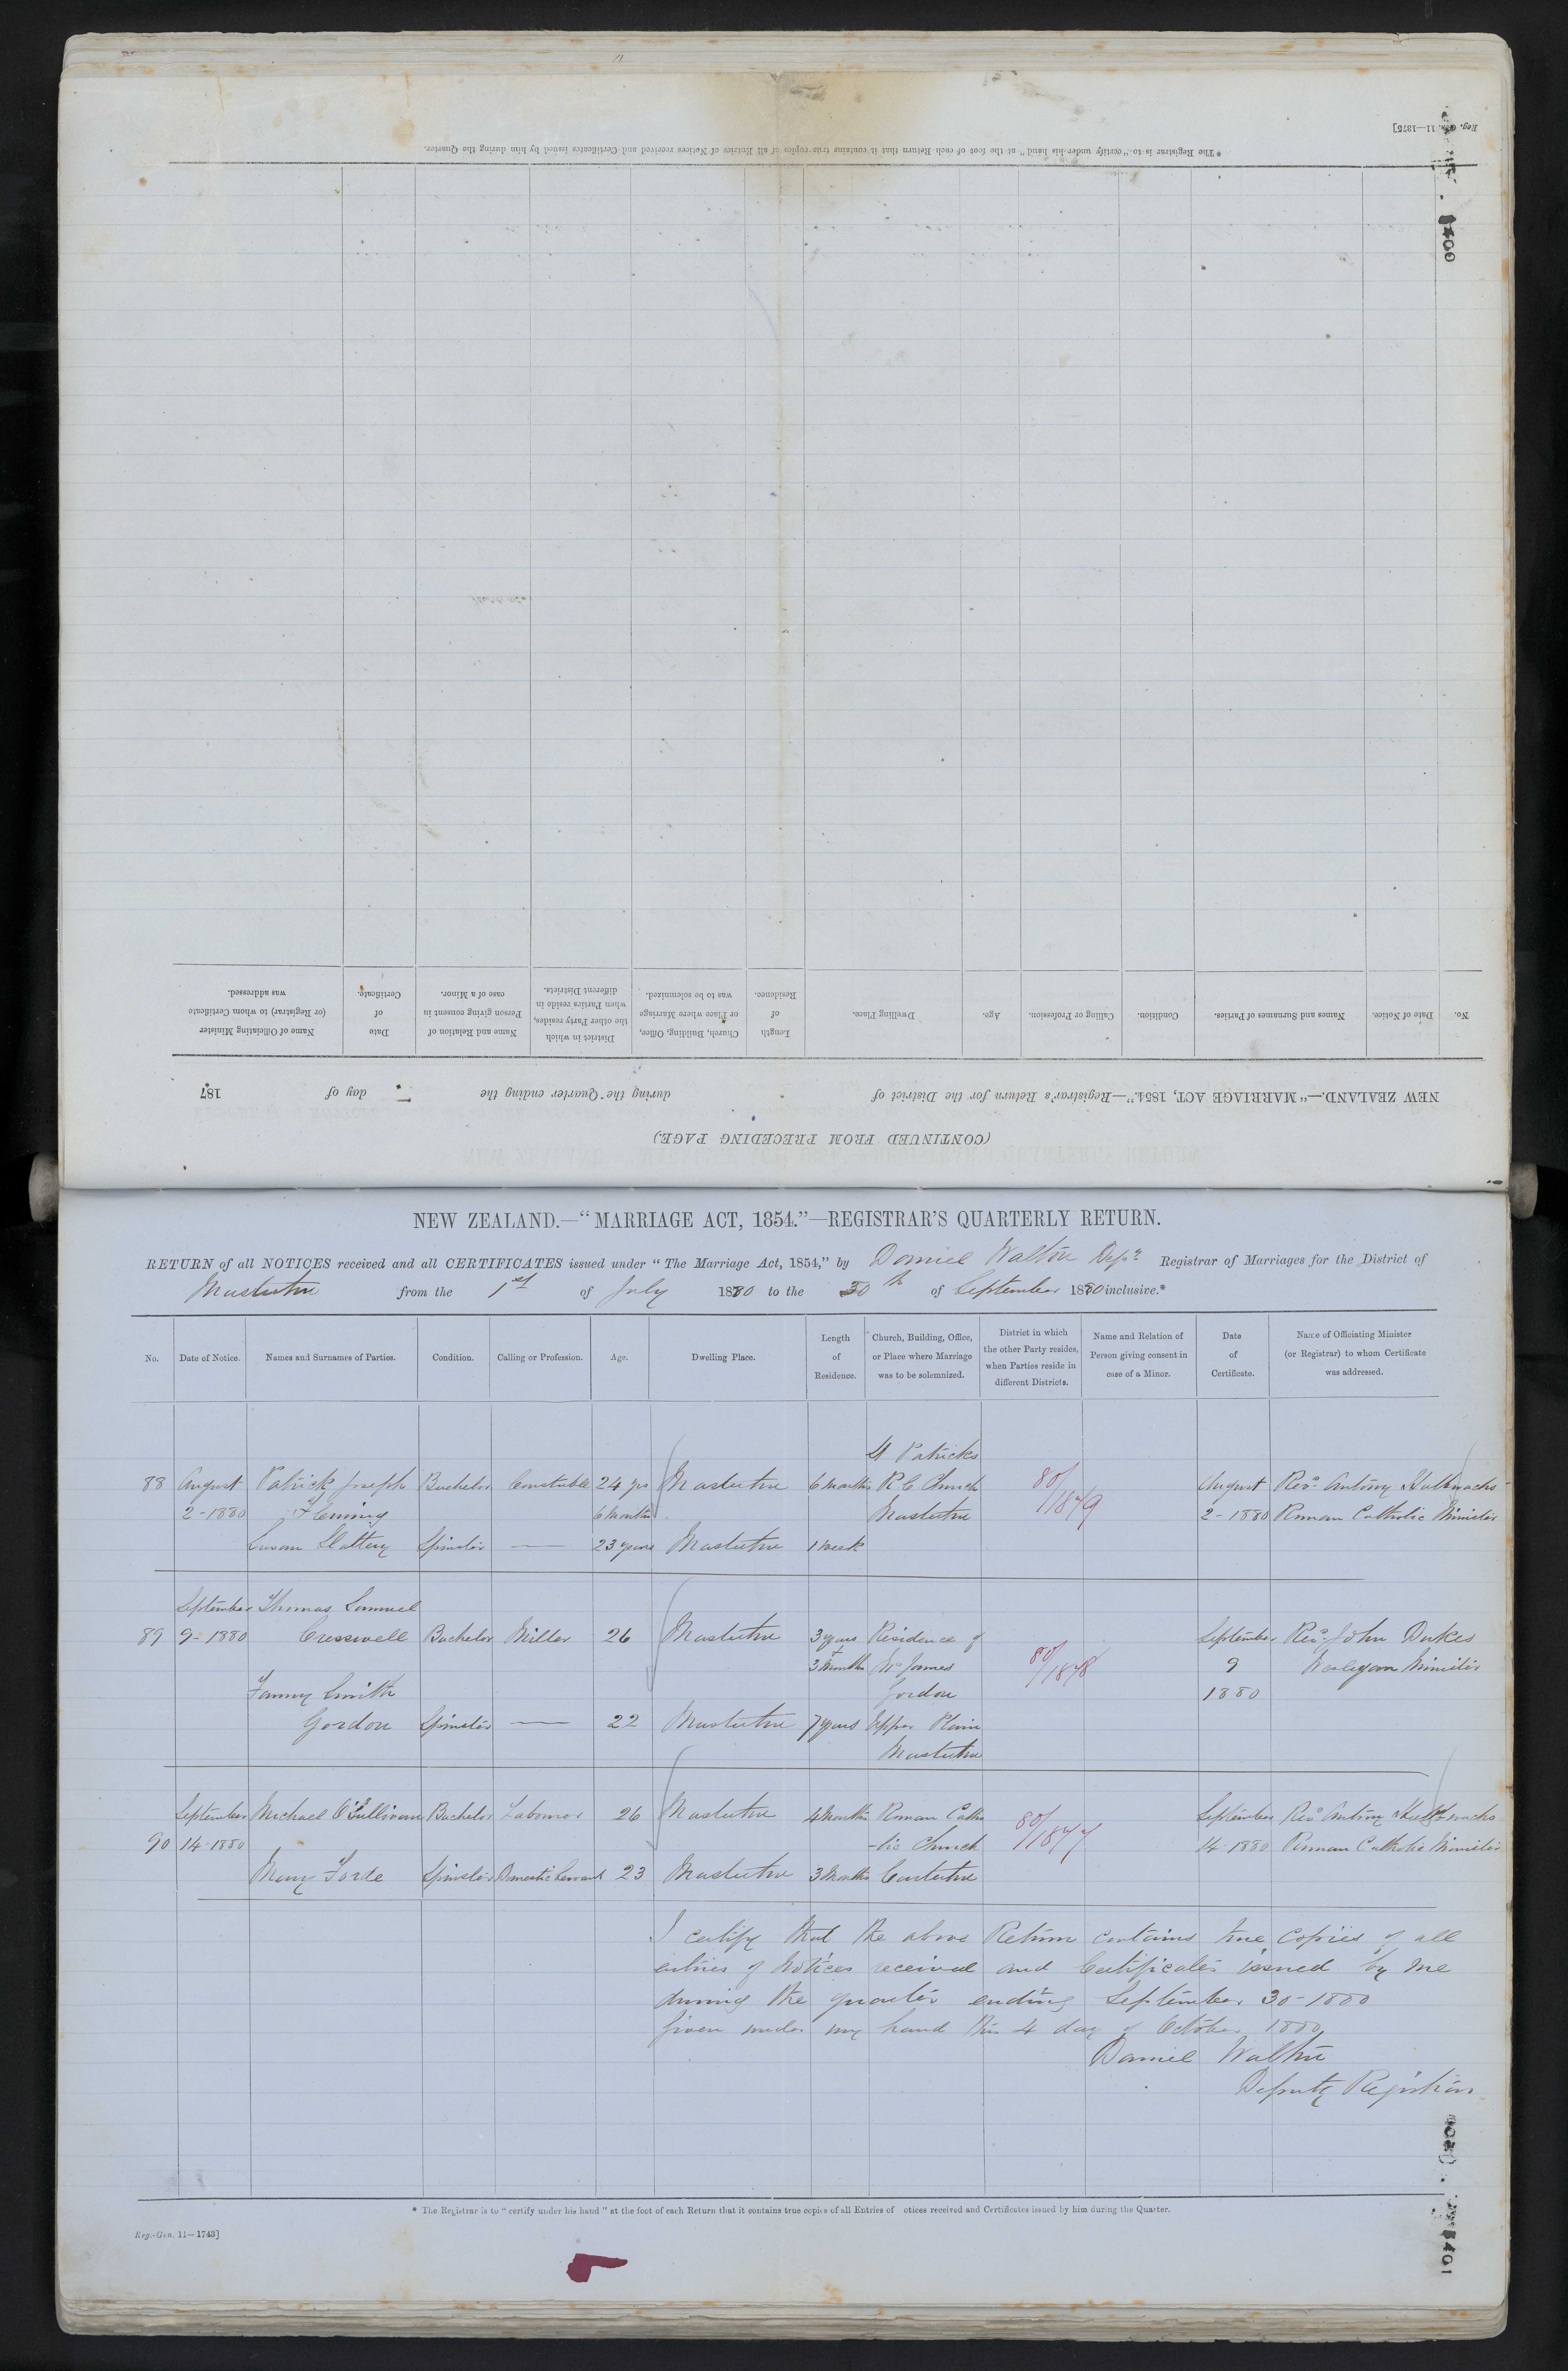 Reg. Gen. 11—1875]
400
* The Registrar is to "certify under his hand" at the foot of each Return that it contains true copies of all Entries of Notices received and Certificates issued by him during the Quarter.
No.
Date of Notice.
Names and Surnames of Parties.
Condition.
Calling or Profession.
Age.
Dwelling Place.
Length
of
Residence.
Church, Building, Office,
or Place where Marriage
was to be solemnized.
District in which
the other Party resides,
when Parties reside in
different Districts.
Name and Relation of
Person giving consent in
case of a Minor.
Date
of
Certificate.
Name of Officiating Minister
(or Registrar) to whom Certificate
was addressed.
NEW ZEALAND.—"MARRIAGE ACT, 1854."—Registrar's Return for the District of during the Quarter ending the day of 187
(CONTINUED FROM PRECEDING PAGE.)
NEW ZEALAND.—"MARRIAGE ACT, 1854."—REGISTRAR'S QUARTERLY RETURN.
RETURN of all NOTICES received and all CERTIFICATES issued under "The Marriage Act, 1854," by Daniel Walton Depy Registrar of Marriages for the District of
Masterton from the 1st of July 1880 to the 30th of September 1880 inclusive.*
No.
Date of Notice.
Names and Surnames of Parties.
Condition.
Calling or Profession.
Age.
Dwelling Place.
Length
of
Residence.
Church, Building, Office,
or Place where Marriage
was to be solemnized.
District in which
the other Party resides,
when Parties reside in
different Districts.
Name and Relation of
Person giving consent in
case of a Minor.
Date
of
Certificate.
Name of Officiating Minister
(or Registrar) to whom Certificate
was addressed.
St Patricks
88 August Patrick Joseph Bachelor Constable 24 yrs Masterton 6 months R C Church 80/1849 August Revd Antony
2-1880 Fleming 6 Months Masterton 2-1880 Roman Catholic Minister
Susan Slattery Spinster — 23 years Masterton 1 week
September Thomas Samuel
89 9-1880 Cresswell Bachelor Miller 26 Masterton 3 years Residence of September Revd John Dukes
+ 3 Months Mr James 80/1848 9 Wesleyan Minister
Fanny Smith Gordon 1880
Gordon Spinster — 22 Masterton 7 years Upper Plain
Masterton
September Michael O'Sullivan Bachelor Labourer 26 Masterton 4 Months Roman Catho 80/1847 September Revd Antony
90 14-1880 -lic Church 14-1880 Roman Catholic Minister
Mary Forde Spinster Domestic Servant 23 Masterton 3 Months Carterton
I certify that the above Return contains true copies of all
entries of Notices received and Certificates issued by me
during the quarter ending September 30-1880
Given under my hand this 4 day of October 1880
Daniel Walton
Deputy Registrar
* The Registrar is to "certify under his hand" at the foot of each Return that it contains true copies of all Entries of otices received and Certificates issued by him during the Quarter.
Reg.-Gen. 11—1743]
401